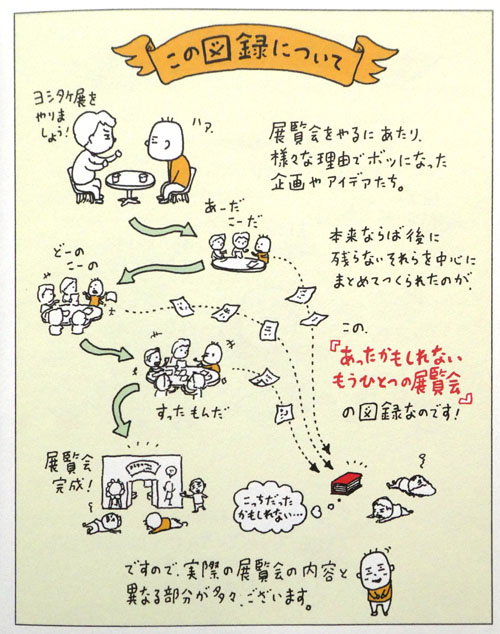 この図録について
ヨシタケ展を
やりま
しょう！
ハァ.
展覧会をやるにあたり、
様々な理由でボツになった
企画やアイデアたち。
あーだ
こーだ
本来ならば後に
残らないそれらを中心に
まとめてつくられたのが
どーの
こーの
この、
『あったかもしれない
もうひとつの展覧会』
の図録なのです！
すったもんだ
展覧会
完成！
こっちだった
かもしれない…
ですので、実際の展覧会の内容と
異なる部分が多々、ございます。